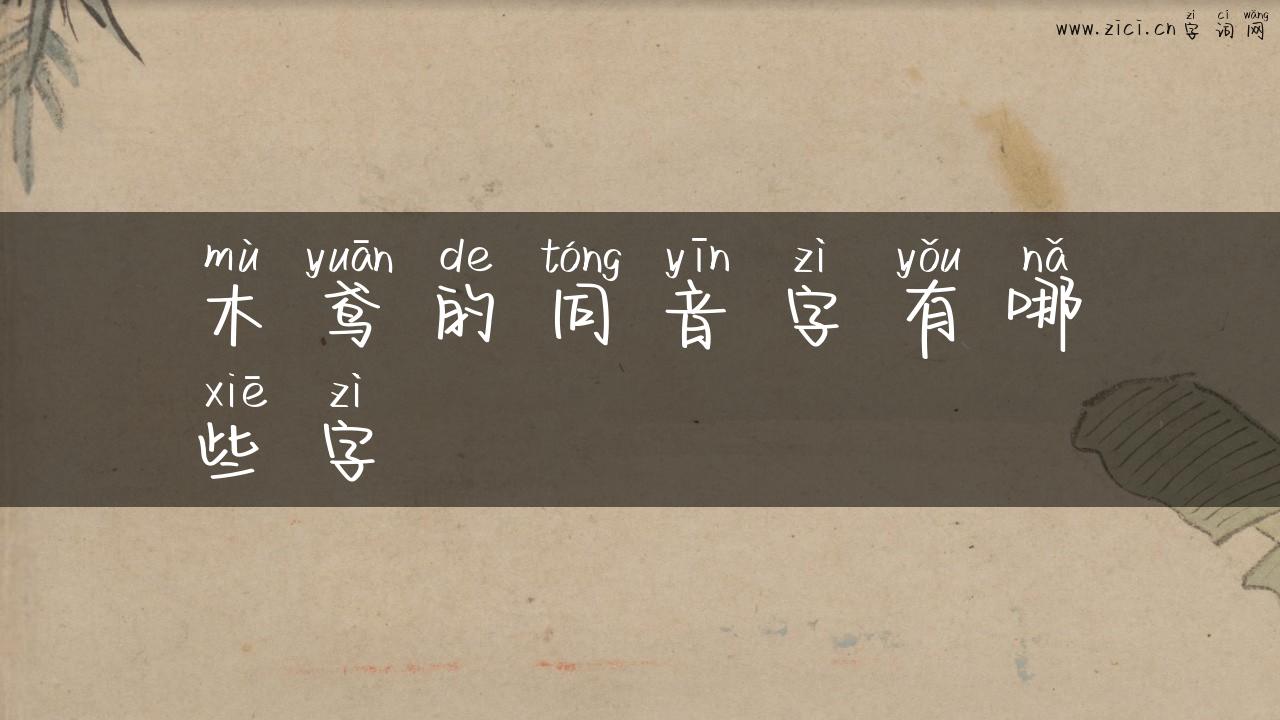 zì cí wǎng
www.zici.cn 字 词 网
mù yuān de tóng yīn zì yǒu nǎ
木 鸢 的 同 音 字 有 哪
xiē zì
些 字